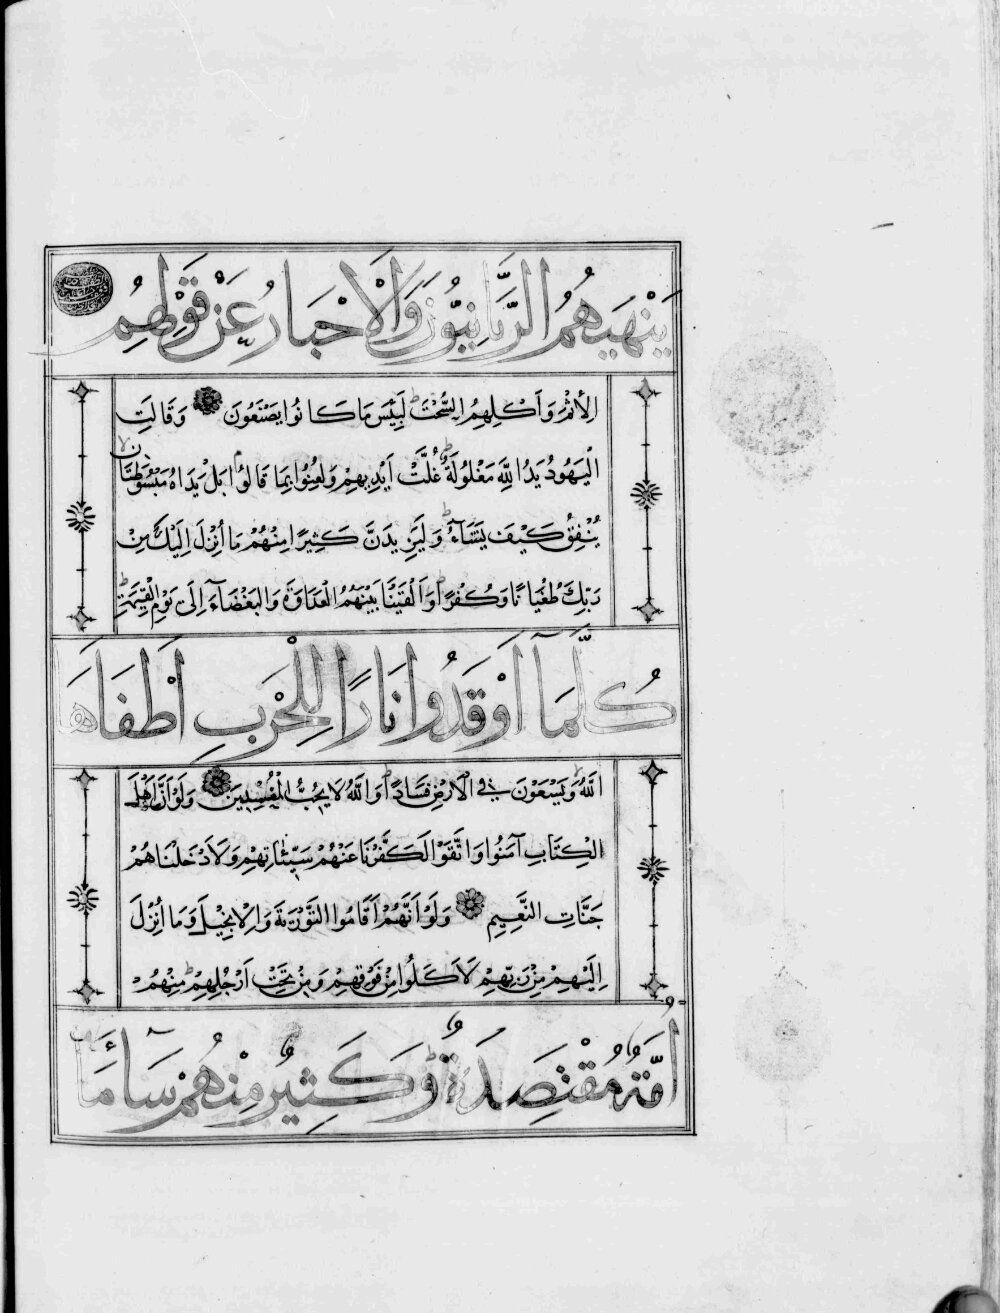 يَنْهَيهُمُ الرَّبَّانِيُّونَ وَالْاَحْبَارُ عَنْ قَوْلِهِمُ
الْاِثْمَ وَاَكْلِهِمُ السُّحْتَ لَبِئْسَ مَا كَانُوا يَصْنَعُونَ وَقَالَتِ
الْيَهُودُ يَدُ اللّٰهِ مَغْلُولَةٌ غُلَّتْ اَيْدِيهِمْ وَلُعِنُوا بِمَا قَالُوا بَلْ يَدَاهُ مَبْسُوطَتَانِ
يُنْفِقُ كَيْفَ يَشَآءُ وَلَيَزِيدَنَّ كَثِيرًا مِنْهُمْ مَا اُنْزِلَ اِلَيْكَ مِنْ
رَبِّكَ طُغْيَانًا وَكُفْرًا وَاَلْقَيْنَا بَيْنَهُمُ الْعَدَاوَةَ وَالْبَغْضَآءَ اِلٰى يَوْمِ الْقِيٰمَةِ
كُلَّمَآ اَوْقَدُوا نَارًا لِلْحَرْبِ اَطْفَاَهَا
اللّٰهُ وَيَسْعَوْنَ فِي الْاَرْضِ فَسَادًا وَاللّٰهُ لَا يُحِبُّ الْمُفْسِدِينَ وَلَوْ اَنَّ اَهْلَ
الْكِتَابِ آمَنُوا وَاتَّقَوْا لَكَفَّرْنَا عَنْهُمْ سَيِّئَاتِهِمْ وَلَاَدْخَلْنَاهُمْ
جَنَّاتِ النَّعِيمِ وَلَوْ اَنَّهُمْ اَقَامُوا التَّوْرٰيةَ وَالْاِنْجِيلَ وَمَا اُنْزِلَ
اِلَيْهِمْ مِنْ رَبِّهِمْ لَاَكَلُوا مِنْ فَوْقِهِمْ وَمِنْ تَحْتِ اَرْجُلِهِمْ مِنْهُمْ
اُمَّةٌ مُقْتَصِدَةٌ وَكَثِيرٌ مِنْهُمْ سَآءَ مَا